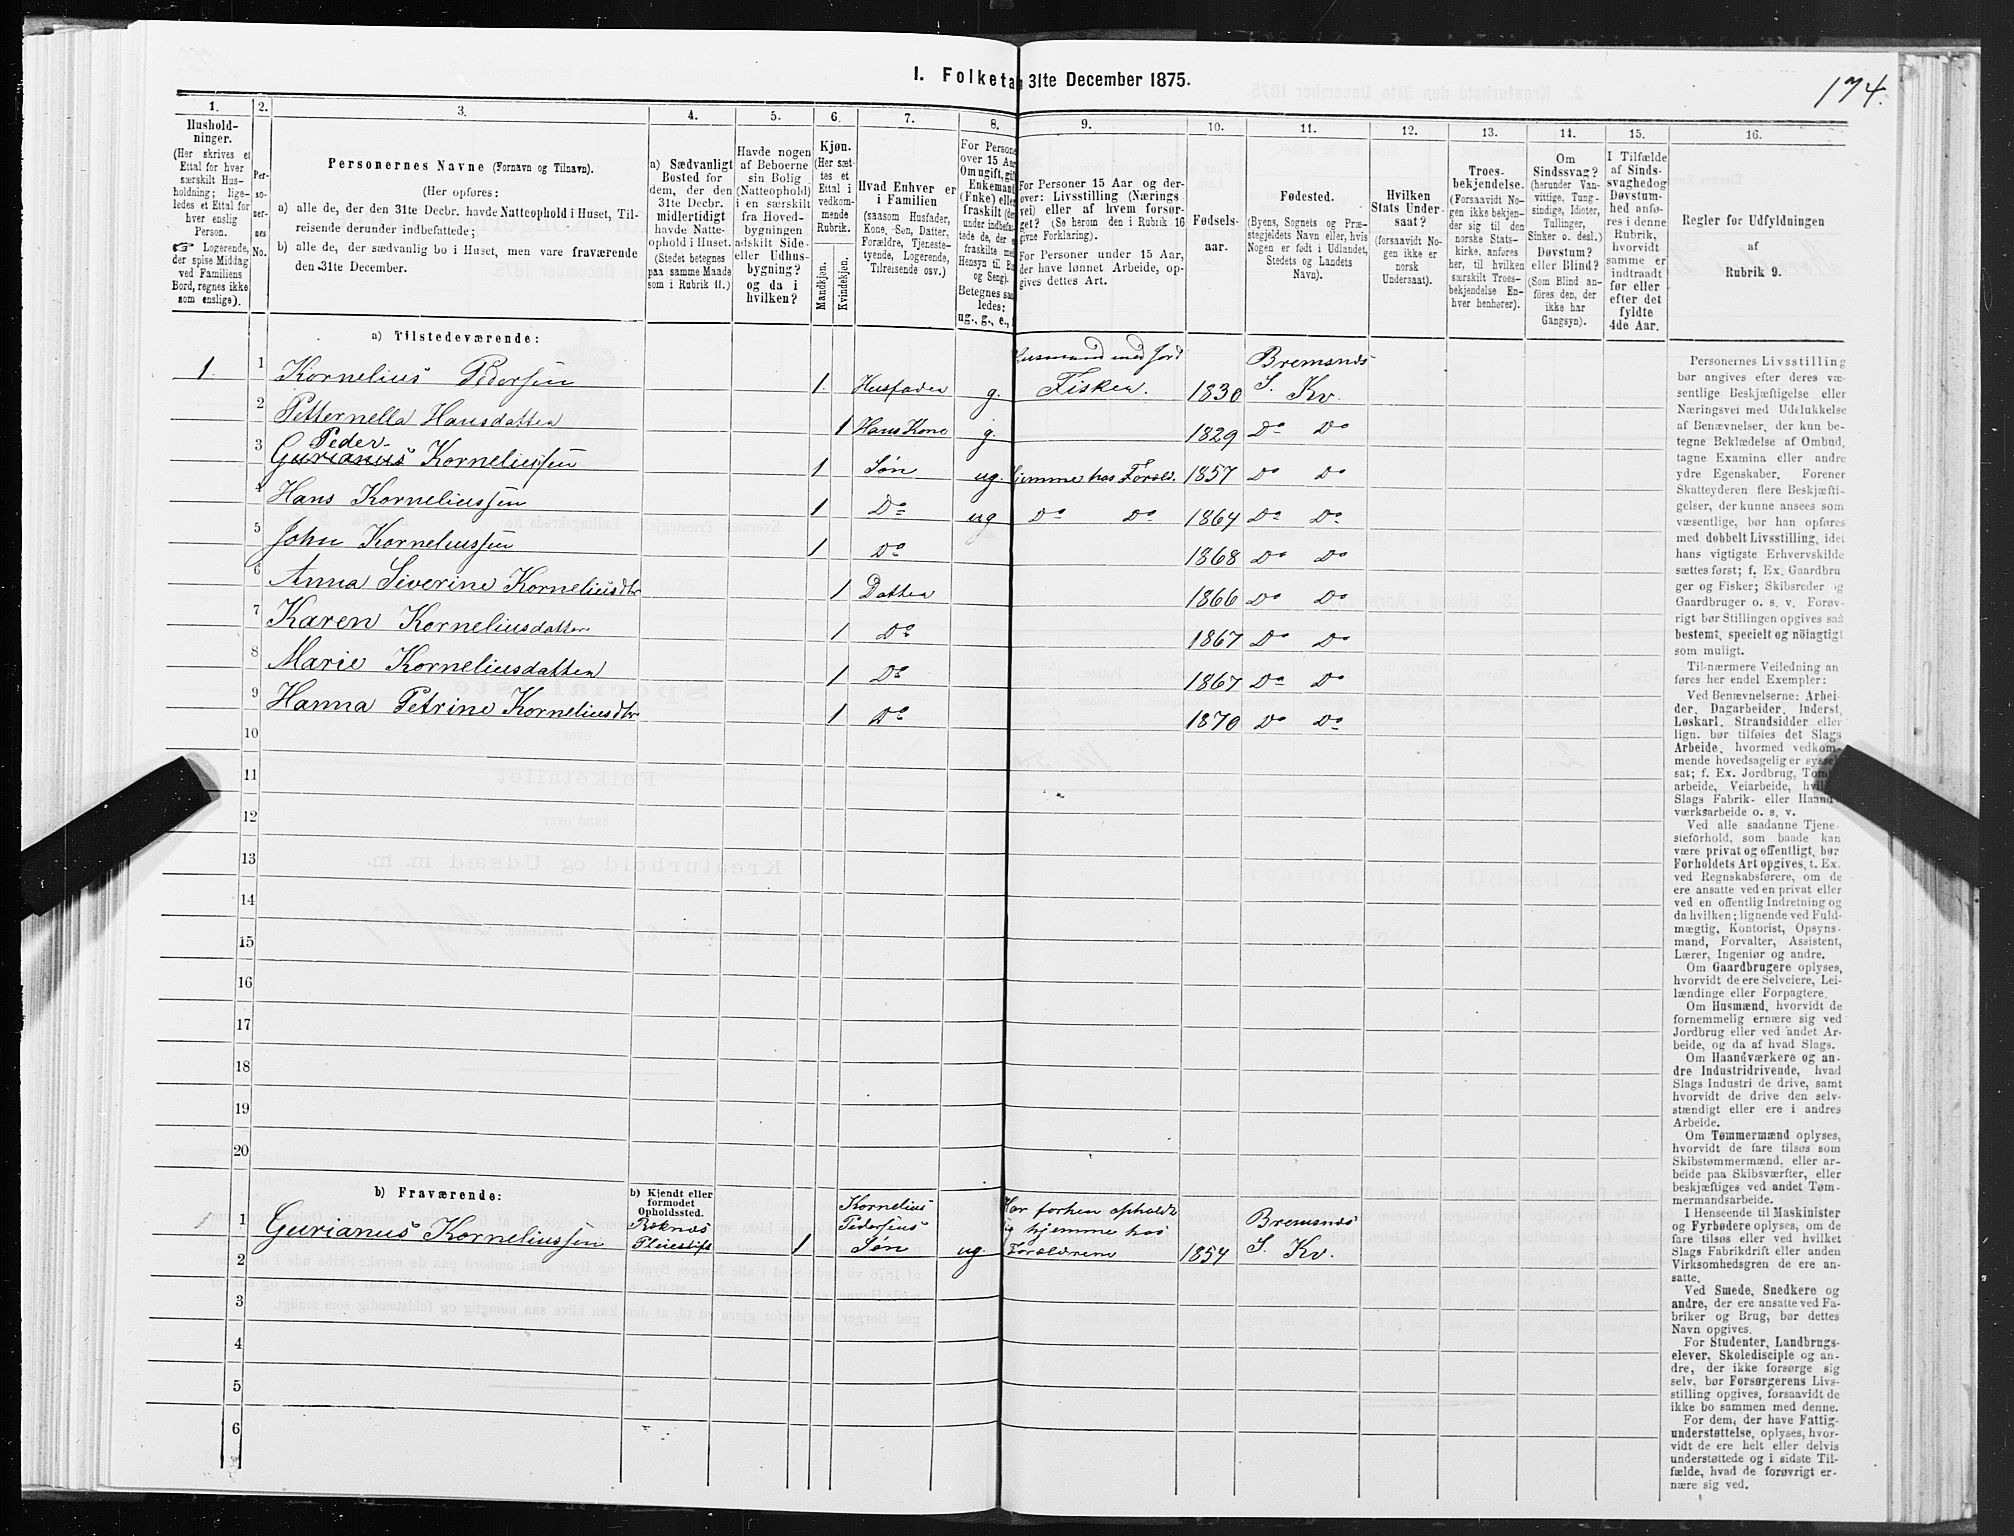 174.
I. Folketa 31te December 1875.
1. 2. 3. 4. 5. 6. 7. 8. 9. 10. 11. 12. 13. 14. 15. 16.
Hushold-
ninger.
(Her skrives et
Ettal for hver
særskilt Hus-
holdning; lige-
ledes et Ettal for
hver enslig
Person.
☞ Logerende,
der spise Middag
ved Familiens
Bord, regnes ikke
som enslige).
Per-
so-
ner-
nes
No.
Personernes Navne (Fornavn og Tilnavn).
(Her opføres:
a) alle de, der den 31te Decbr. havde Natteophold i Huset, Til-
reisende derunder indbefattede;
b) alle de, der sædvanlig bo i Huset, men vare fraværende
den 31te December.
a) Sædvanligt
Bosted for
dem, der den
31te Decbr.
midlertidigt
havde Natte-
ophold i Huset.
(Stedet betegnes
paa samme Maade
som i Rubrik 11.)
Havde nogen
af Beboerne
sin Bolig
(Natteophold)
i en særskilt
fra Hoved-
bygningen
adskilt Side-
eller Udhus-
bygning?
og da i
hvilken?
Kjøn.
(Her sæt-
tes et
Ettal i
vedkom-
mende
Rubrik.
Mandkjøn.
Kvindekjøn.
Hvad Enhver er
i Familien
(saasom Husfader,
Kone, Søn, Datter,
Forældre, Tjeneste-
tyende, Logerende,
Tilreisende osv.)
For Persone
over 15 Aar
Om ugift, gift
Enkemand
(Enke) eller
fraskilt (de
under indbefat-
tede de, der e
fraskilte me
Hensyn til Bo
og Seng).
Betegnes saa
ledes:
ug., g., e.,
For Personer 15 Aar og der-
over: Livsstilling (Nærings
vei) eller af hvem forsør-
get? (Se herom den i Rubrik 16
givne Forklaring).
For Personer under 15 Aar,
der have lønnet Arbeide, op-
gives dettes Art.
Fødsels-
aar.
Fødested.
(Byens, Sognets og Præ-
stegjeldets Navn eller, hvis
Nogen er født i Udlandet,
Stedets og Landets
Navn).
Hvilken
Stats Under-
saat?
(forsaavidt No-
gen ikke er
norsk
Undersaat).
Troes-
bekjendelse.
(Forsaavidt No-
gen ikke bekjen-
der sig til den
norske Stats-
kirke, anføres
her, til hvilken
særskilt Troes-
bekjendelse En-
hver henhører).
Om
Sindssvag?
(herunder Van-
vittige, Tung-
sindige, Idioter,
Tullinger,
Sinker o. desl.)
Døvstum?
eller Blind?
(Som Blind an-
føres den, der
ikke har
Gangsyn).
I Tilfælde
af Sinds-
svaghed og
Døvstum-
hed anfø-
res i denne
Rubrik,
hvorvidt
samme er
indtraadt
før eller
efter det
fyldte
4de Aar.
Regler for Udfyldningen
af
Rubrik 9.
a) Tilstedeværende:
1. 1 Kornelius Pedersen 1. Husfader g. Husmand med Jord Fisker. 1830 Bremsnæs S. Kv.
2 Petternella Hansdatter 1 Hans Kone g. 1829 Do Do
Peder
3 Gurianus Korneliussen 1 Søn ug. hjemme hos Foræld. 1857 Do Do
4 Hans Korneliussen 1 Do ug Do Do 1864 Do Do
5 John Korneliussen 1 Do 1868 Do Do
6 Anna Siverine Korneliusdtr 1 Datter 1866 Do Do
7 Karen Korneliusdatter 1 Do 1867 Do Do
8 Marie Korneliusdatter 1 Do 1867 Do Do
9 Hanna Petrine Korneliusdtr 1 Do 1870 Do Do
10
11
12
13
14
15
16
17
18
19
20
b) Fraværende:
b) Kjendt eller
formodet
Opholdssted.
1 1 Gurianus Korneliussen Roknæs 1 Kornelius Pedersens Søn ug. Har forhen opholdt sig hjemme hos Forældrene 1854 Bremsnæs S. Kv.
2
3
4
5
6
Personernes Livsstilling
bør angives efter deres væ-
sentlige Beskjæftigelse eller
Næringsvei med Udelukkelse
af Benævnelser, der kun be-
tegne Beklædelse af Ombud,
tagne Examina eller andre
ydre Egenskaber. Forener
Skatteyderen flere Beskjæfti-
gelser, der kunne ansees som
væsentlige, bør han opføres
med dobbelt Livsstilling, idet
hans vigtigste Erhvervskilde
sættes først; f. Ex. Gaardbru-
ger og Fisker; Skibsreder og
Gaardbruger o. s. v. Forøv-
rigt bør Stillingen opgives saa
bestemt, specielt og nöiagtigt
som muligt.
Til nærmere Veiledning an
føres her endel Exempler:
Ved Benævnelserne: Arbei-
der, Dagarbeider, Inderst,
Løskarl, Strandsidder eller
lign. bør tilføies det Slags
Arbeide, hvormed vedkom-
mende hovedsagelig er syssel
sat; f. Ex. Jordbrug, Tomt
arbeide, Veiarbeide, hvilk
Slags Fabrik- eller Haand-
værksarbeide o. s. v.
Ved alle saadanne Tjene-
steforhold, som baade kan
være privat og offentligt, bør
Forholdets Art opgives, t. Ex.
ved Regnskabsførere, om de
ere ansatte ved en privat eller
ved en offentlig Indretning og
da hvilken; lignende ved Fuld-
mægtig, Kontorist, Opsyns-
mand, Forvalter, Assistent,
Lærer, Ingeniør og andre.
Om Gaardbrugere oplyses,
hvorvidt de ere Selveiere, Lei-
lændinge eller Forpagtere.
Om Husmænd, hvorvidt de
fornemmelig ernære sig ved
Jordbrug eller ved andet Ar-
beide, og da af hvad Slags.
Om Haandværkere og an-
dre Industridrivende, hvad
Slags Industri de drive, samt
hvorvidt de drive den selv-
stændigt eller ere i andres
Arbeide.
Om Tømmermænd oplyses,
hvorvidt de fare tilsøs som
Skibstømmermænd, eller ar-
beide paa Skibsværfter, eller
beskjæftiges ved andet Tøm-
mermandsarbeide.
I Henseende til Maskinister
og Fyrbødere oplyses, om de
fare tilsøs eller ved hvilket
Slags Fabrikdrift eller anden
Virksomhedsgren de ere an-
satte.
Ved Smede, Snedkere og
andre, der ere ansatte ved Fa-
briker og Brug, bør dettes
Navn opgives.
For Studenter, Landbrugs-
elever, Skoledisciple og an-
dre, der ikke forsørge sig
selv, bør Forsørgerens Livs-
stilling opgives, forsaavidt de
ikke bo sammen med denne.
For dem, der have Fattig-
understøttelse, oplyses, hvor-
vidt de ere helt eller delvis
understøttede og i sidste Til-
fælde, hvad de forøvrigt er-
nære sig ved.